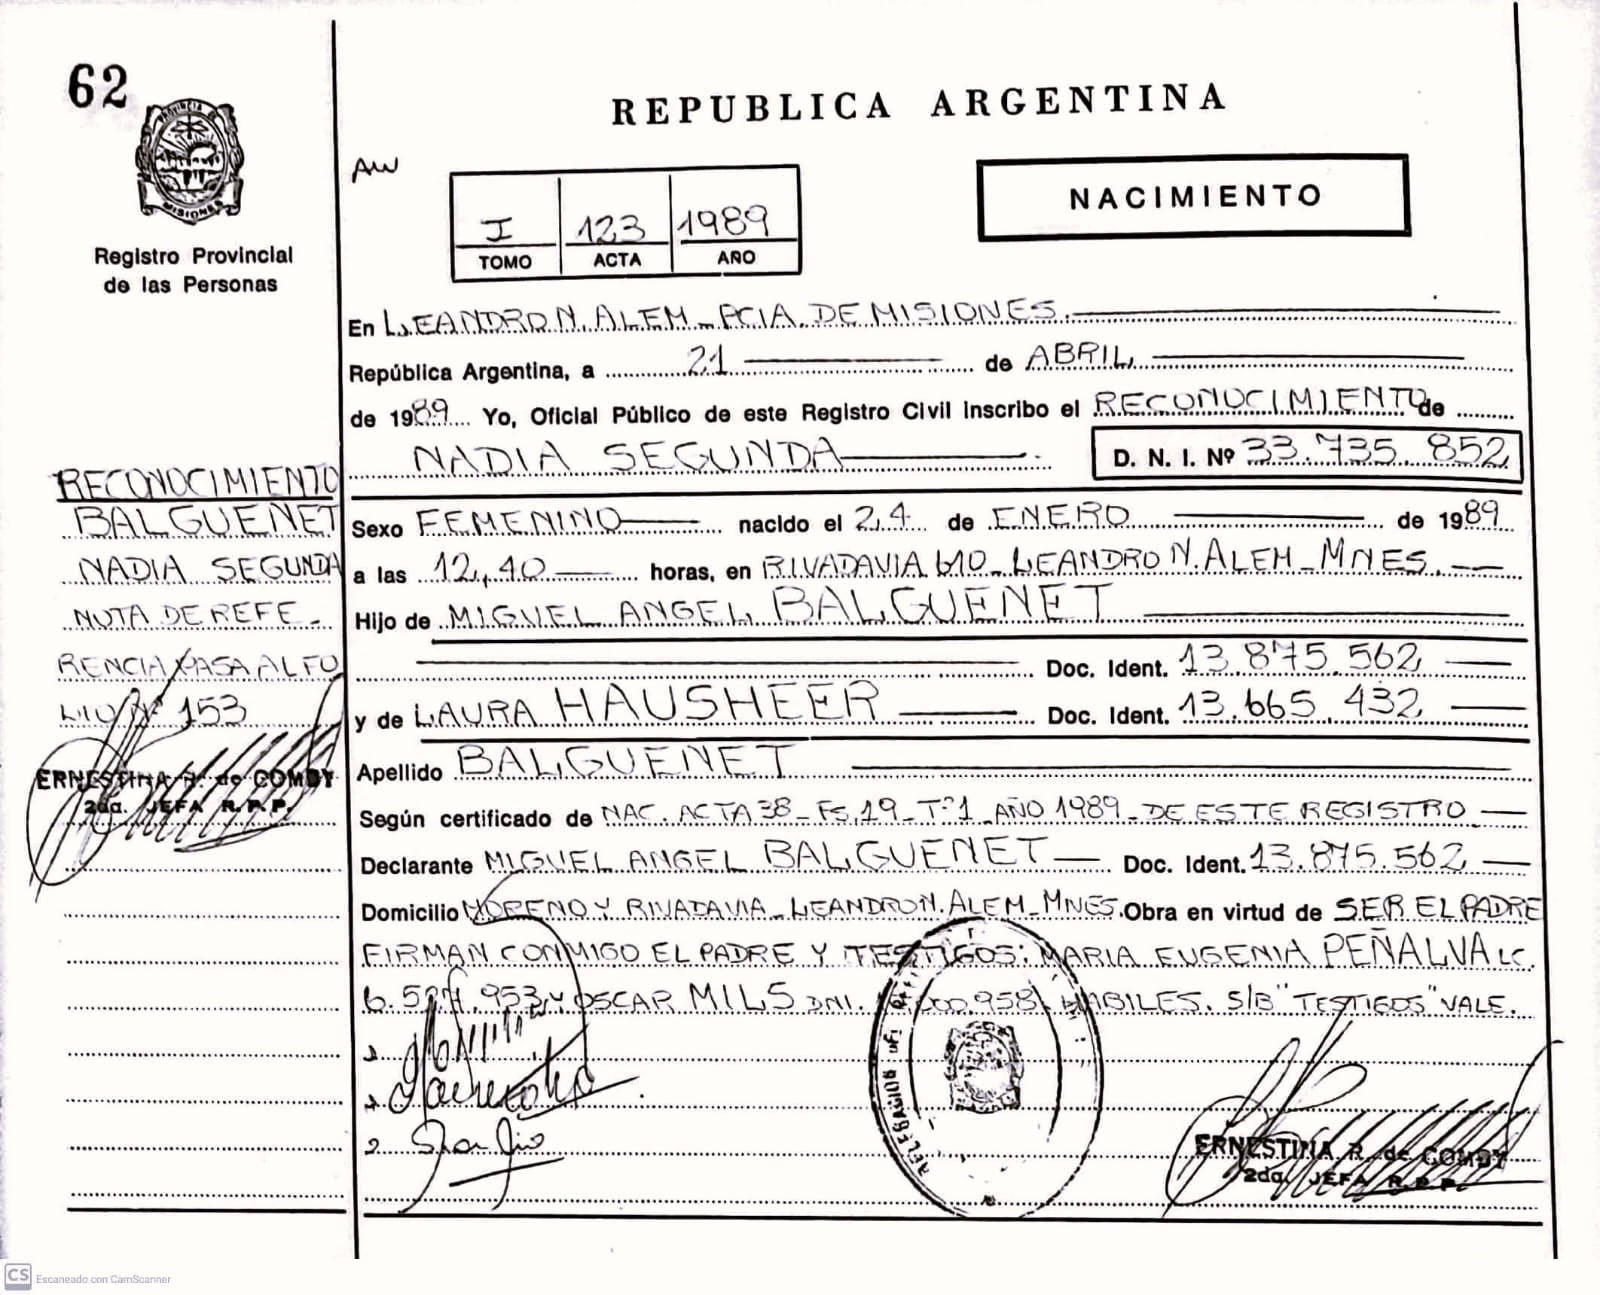 62
PROVINCIA DE
MISIONES
Registro Provincial
de las Personas
REPUBLICA ARGENTINA
AW
I 123 1989
TOMO ACTA AÑO
NACIMIENTO
En LEANDRO N. ALEM - PCIA. DE MISIONES.
República Argentina, a 21 de ABRIL
de 1989 Yo, Oficial Público de este Registro Civil inscribo el RECONOCIMIENTO de
NADIA SEGUNDA D. N. I. Nº 33.735.852
Sexo FEMENINO nacido el 24 de ENERO de 1989
a las 12,40 horas, en RIVADAVIA 610 - LEANDRO N. ALEM - MNES.
Hijo de MIGUEL ANGEL BALGUENET
Doc. Ident. 13.875.562
y de LAURA HAUSHEER Doc. Ident. 13.665.432
Apellido BALGUENET
Según certificado de NAC. ACTA 38 - FS. 19 - Tº 1 - AÑO 1989 - DE ESTE REGISTRO
Declarante MIGUEL ANGEL BALGUENET Doc. Ident. 13.875.562
Domicilio MORENO Y RIVADAVIA - LEANDRO N. ALEM - MNES. Obra en virtud de SER EL PADRE
FIRMAN CONMIGO EL PADRE Y TESTIGOS: MARIA EUGENIA PEÑALVA LC.
Y OSCAR MILS DNI. HABILES. S/B "TESTIGOS" VALE.
DELEGACION
ERNESTINA R. de COMDY
2da. JEFA R. P. P.
RECONOCIMIENTO
BALGUENET
NADIA SEGUNDA
NOTA DE REFE-
RENCIA PASA AL FO
LIO Nº 153
ERNESTINA R. de COMDY
2da. JEFA R. P. P.
CS Escaneado con CamScanner